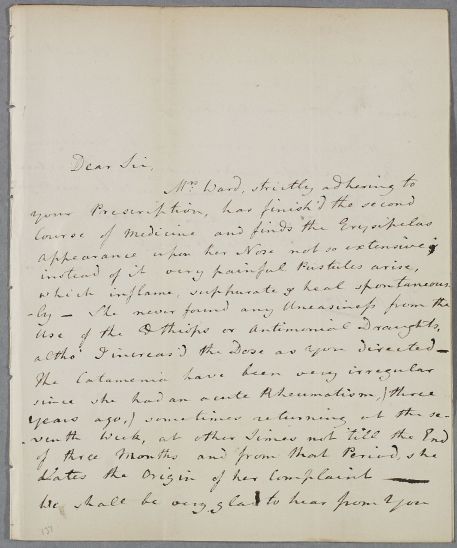 Dear Sir,
Mrs. Ward, strictly adhering to
your Prescription, has finish'd the second
Course of Medicine and finds the Erysipelas
appearance upon her Nose not so extensive;
instead of it very painful Pustules arise,
which inflame, supphurate & heal spontaneous
-ly — She never found any Uneasiness from the
Use of the Æthiops or Antimonial Draughts,
altho' I increas'd the Dose as you directed —
The Catamenia have been very irregular
since she had an acute Rheumatism, (three
years ago,) sometimes returning at the se-
-venth Week, at other Times not 'till the End
of three Months and from that Period, she
dates the Origin of her Complaint —
We shall be very glad to hear from you